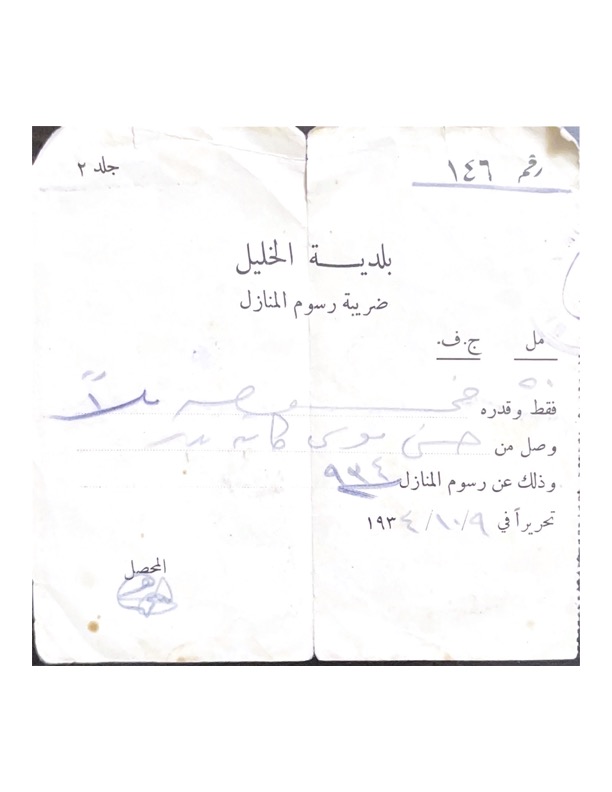 رقم ١٤٦
جلد ٢
بلديـــة الخليل
ضريبة رسوم المنازل
مل ج. ف.
٥٠
فقط وقدره ملاً
وصل من حسن موسى بدر
وذلك عن رسوم المنازل ٩٣٤
تحريراً في ٩/١٠/١٩٣٤
المحصل